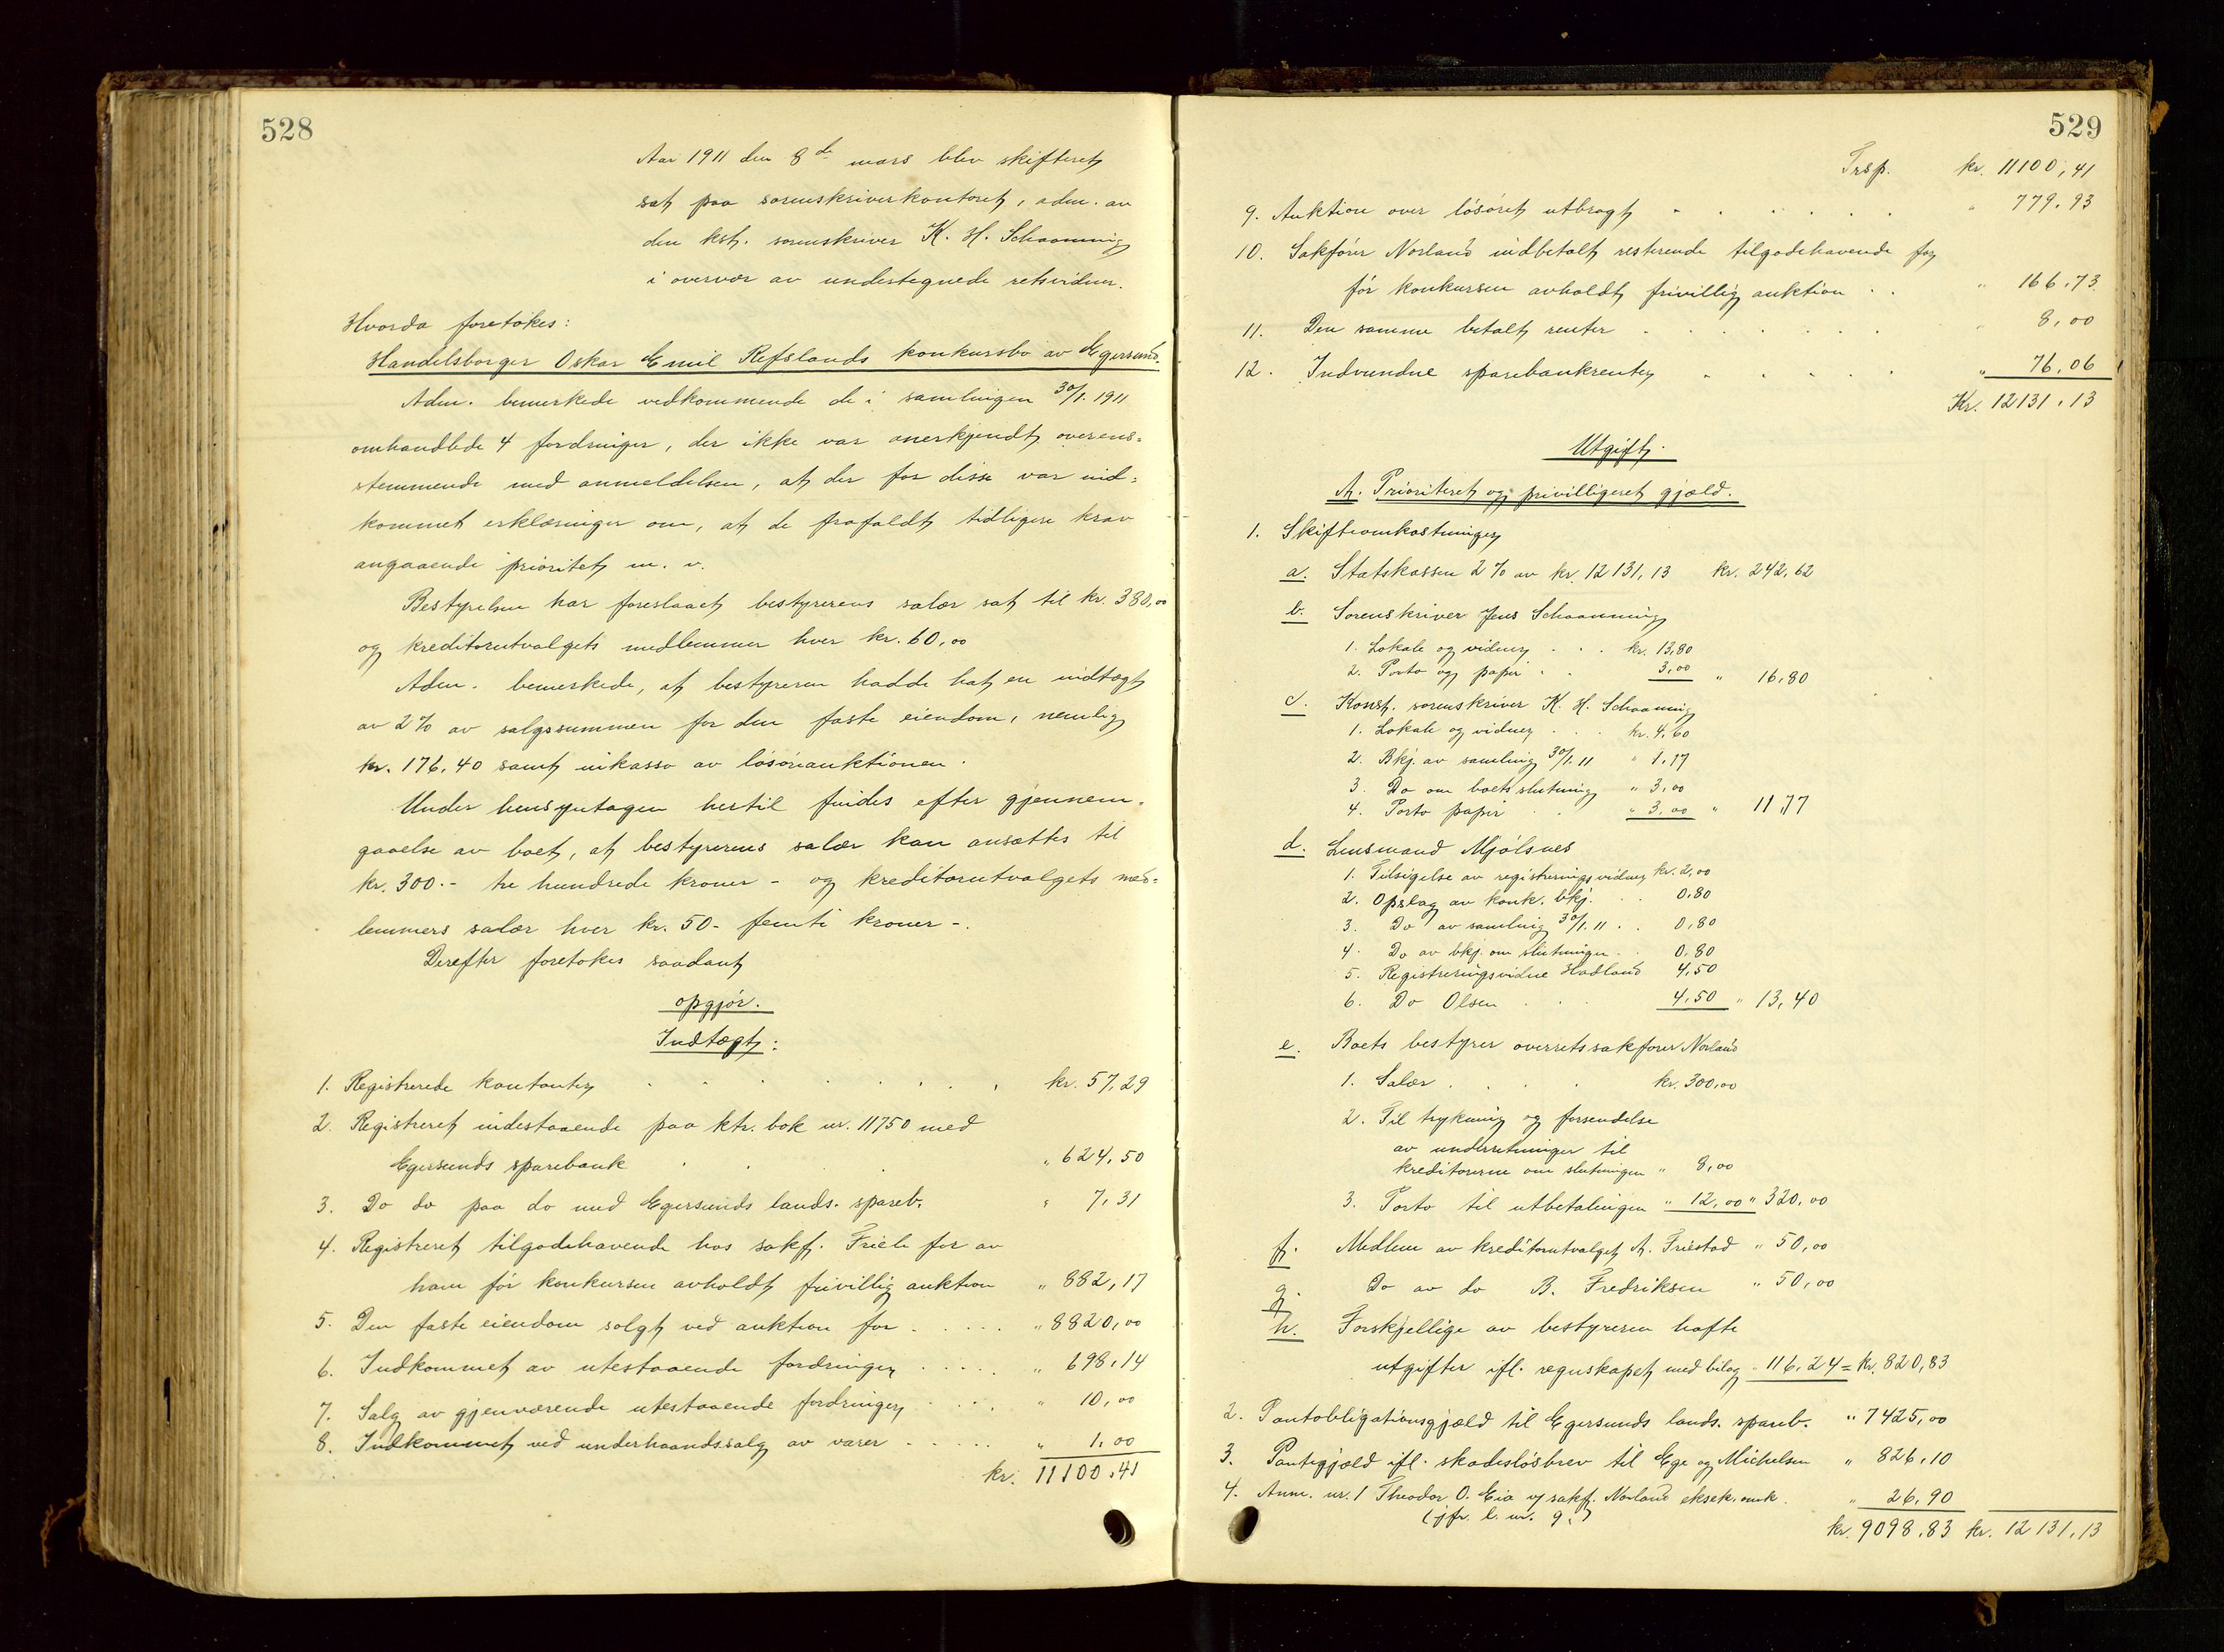 528
Aar 1911 den 8de mars blev skifteret
sat paa sorenskriverkontoret, adm. av
den kst. sorenskriver K. H. Schaanning
i overvær av undertegnede retsvidner.
Hvorda foretokes:
Handelsborger Oskar Emil Refslands konkursbo av Egersund.
Adm. bemerkede vedkommende de i samlingen 30/1. 1911
omhandlede 4 fordringer, der ikke var anerkjendt overens=
stemmende med anmeldelsen, at der for disse var ind=
kommet erklæringer om, at de frafaldt tidligere krav
angaaende prioritet m. v.
Bestyrelsen har foreslaaet bestyrerens salær sat til kr. 380,00
og kreditorutvalgets medlemmer hver kr. 60,00
Adm. bemerkede, at bestyreren hadde hat en indtægt
av 2% av salgssummen for den faste eiendom, nemlig
kr. 176,40 samt inkasso av løsøreauktionen.
Under hensyntagen hertil findes efter gjennem-
gaaelse av boet, at bestyrerens salær kan ansættes til
kr. 300.- tre hundrede kroner - og kreditorutvalgets med=
lemmers salær hver kr. 50- femti kroner -.
Derefter foretokes saadant
opgjør.
Indtægt:
1. Registrerede kontanter kr. 57,29
2. Registreret indestaaende paa ktr. bok nr. 11750 med
Egersunds sparebank " 624,50
3. Do do paa do med Egersunds lands. spareb. " 7,31
4. Registreret tilgodehavende hos sakf. Friele for av
ham før konkursen avholdt frivillig auktion " 882,17
5. Den faste eiendom solgt ved auktion for " 8820,00
6. Indkommet av utestaaende fordringer " 698,14
7. Salg av gjenværende utestaaende fordringer " 10,00
8. Indkommet ved underhaandssalg av varer " 1,00
kr. 11100,41
529
Trsp. kr. 11100,41
9. Auktion over løsøret utbragt " 779,93
10. Sakfører Norland indbetalt resterende tilgodehavende for
før konkursen avholdt frivillig auktion " 166,73
11. Den samme betalt renter " 8,00
12. Indvundne sparebankrenter " 76,06
Kr. 12131,13
Utgift.
A. Prioriteret og privilligeret gjæld.
1. Skifteomkostninger
a. Statskassen 2% av kr. 12131,13 kr. 242,62
b. Sorenskriver Jens Schaanning
1. Lokale og vidner kr. 13,80
2. Porto og papir 3,00 " 16,80
c. Konst. sorenskriver K. H. Schaanning
1. Lokale og vidner kr. 4,60
2. Bkj. av samling 30/1. 11 " 1,17
3. Do om boets slutning " 3,00
4. Porto papir " 3,00 " 11,77
d. Lensmand Mjølsnes
1. Tilsigelse av registreringsvidner kr. 2,00
2. Opslag av konk. bkj. 0,80
3. Do av samling 30/1. 11 0,80
4. Do av bkj. om slutningen 0,80
5. Registreringsvidne Hadland 4,50
6. Do Olsen 4,50 " 13,40
e. Boets bestyrer overretssakfører Norland
1. Salær kr. 300,00
2. Til trykning og forsendelse
av underretninger til
kreditorerne om slutningen " 8,00
3. Porto til utbetalingen " 12,00 " 320,00
f. Medlem av kreditorutvalget A. Friestad " 50,00
g. Do av do B. Fredriksen " 50,00
h. Forskjellige av bestyreren hafte
utgifter ifl. regnskapet med bilag " 116,24 = kr. 820,83
2. Pantobligationsgjæld til Egersunds lands. spareb. " 7425,00
3. Pantegjæld ifl. skadesløsbrev til Ege og Michelsen " 826,10
4. Anm. nr. 1 Theodor O. Eia v/ sakf. Norland eksek. omk. " 26,90
(jfr. l. nr. 9.)
kr. 9098,83 kr. 12131,13